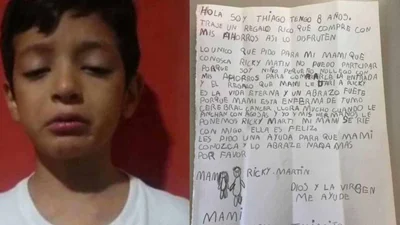 HOLA SOY THIAGO TENGO 8 AÑOS.
TRAJE UN REGALO RICO QUE COMPRE CON
MIS AHORROS ASI LO DISFRUTEN
LO UNICO QUE PIDO PARA MI MAMI QUE
CONOSCA RICKY MATIN NO PUEDO PARTICIPAR
PORQUE SOY NIÑO PEQUEÑO NOLLEGO CON
MIS AHORROS PARA LA ENTRADA
Y EL REGALO QUE MAMI RICKY
ES LA VIDA ETERNA Y UN ABRAZO FUETE
PORQUE MAMI ESTA ENFERMA DE TUMO
CEREBRAL CANCER LLORA MUCHO CUANDO LE
PINCHAN CON AGUJAS Y YO Y MIS HERMANOS LE
PONEMOS RICKY MARTI MI MAMI SE RIE
CON MIGO ELLA ES FELIZ
LES PIDO UNA AYUDA PARA QUE MAMI
CONOZCA Y LO ABRAZE NADA MAS
POR FAVOR
MAMI RICKY MARTIN
DIOS Y LA VIRGEN
ME AYUDE
MAMI